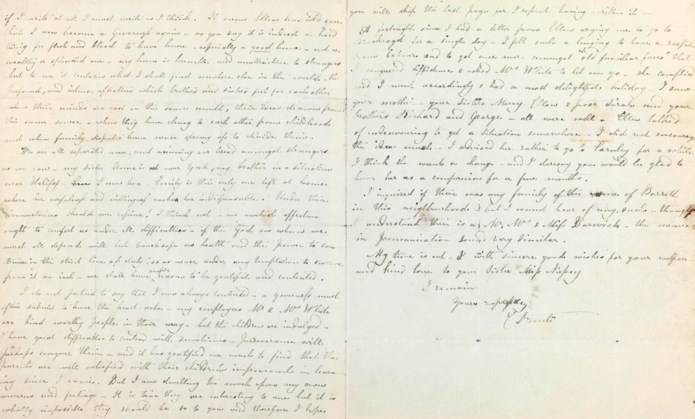 if I write at all I must write as I think. It seems Ellen has told you
that I am become a Governess again - as you say it is indeed a hard
thing for flesh and blood to leave home - especially a good home - not a
wealthy or splendid one - my home is humble and unattractive to strangers
but to me it contains what I shall find nowhere else in the world - the
profound, and intense affection which brothers and sisters feel for each other
when their minds are cast in the same mould, their ideas drawn from
the same source - when they have clung to each other from childhood
and when family disputes have never sprung up to divide them.
We are all separated now, and winning our bread amongst strangers
as we can - my sister Anne is near York, my brother in a situation
near Halifax, I am here, Emily is the only one left at home
where her usefulness and willingness make her indispensable. Under these
circumstances should we repine? I think not - our mutual affection
ought to comfort us under all difficulties - if the God on whom we
must all depend will but vouchsafe us health and the power to con-
tinue in the strict line of duty, so as never under any temptation to swerve
from it an inch - we shall have reason to be grateful and contented.
I do not pretend to say that I am always contented - a governess must
often submit to have the heart-ache - my employers Mr & Mrs White
are kind worthy people in their way - but the children are indulged -
I have great difficulties to contend with sometimes - Perseverance will
perhaps conquer them - and it has gratified me much to find that the
parents are well satisfied with their children's improvement in learn-
ing since I came. But I am dwelling too much upon my own
concerns and feelings - It is true they are interesting to me but it is
wholly impossible they should be so to you and therefore I hope
you will skip the last page for I repent having written it -
A fortnight since I had a letter from Ellen urging me to go to
Brookroyd for a single day - I felt such a longing to have a respite
from labour and to get once more amongst old familiar faces that
I conquered diffidence & asked Mrs White to let me go - she complied
and I went accordingly & had a most delightful holiday. I saw
your mother - your sisters Mercy Ellen & poor Sarah and your
brothers Richard and George - all were well - Ellen talked
of endeavouring to get a situation somewhere - I did not encourage
the idea much - I advised her rather to go to Earnley for a while
I think she wants a change - and I daresay you would be glad to
have her as a companion for a few months.
I inquired if there was any family of the name of Barrett
in this neighbourhood & but I cannot hear of any such - though
I understand there is a Mr, Mrs & Miss Barwick - the names
in pronunciation sound very similar.
My time is out - With sincere good wishes for your welfare
and kind love to your Sister Miss Nussey
I remain
Yours respectfully
C Brontë